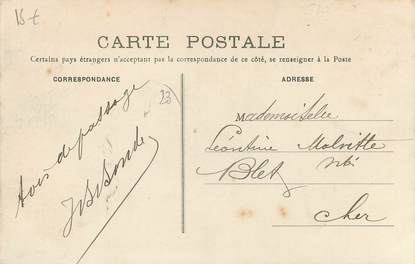 15€
CARTE POSTALE
Certains pays étrangers n'acceptant pas la correspondance de ce côté, se renseigner à la Poste
CORRESPONDANCE
ADRESSE
23
Avis de passage
Mademoiselle
Léontine
Blet
Cher